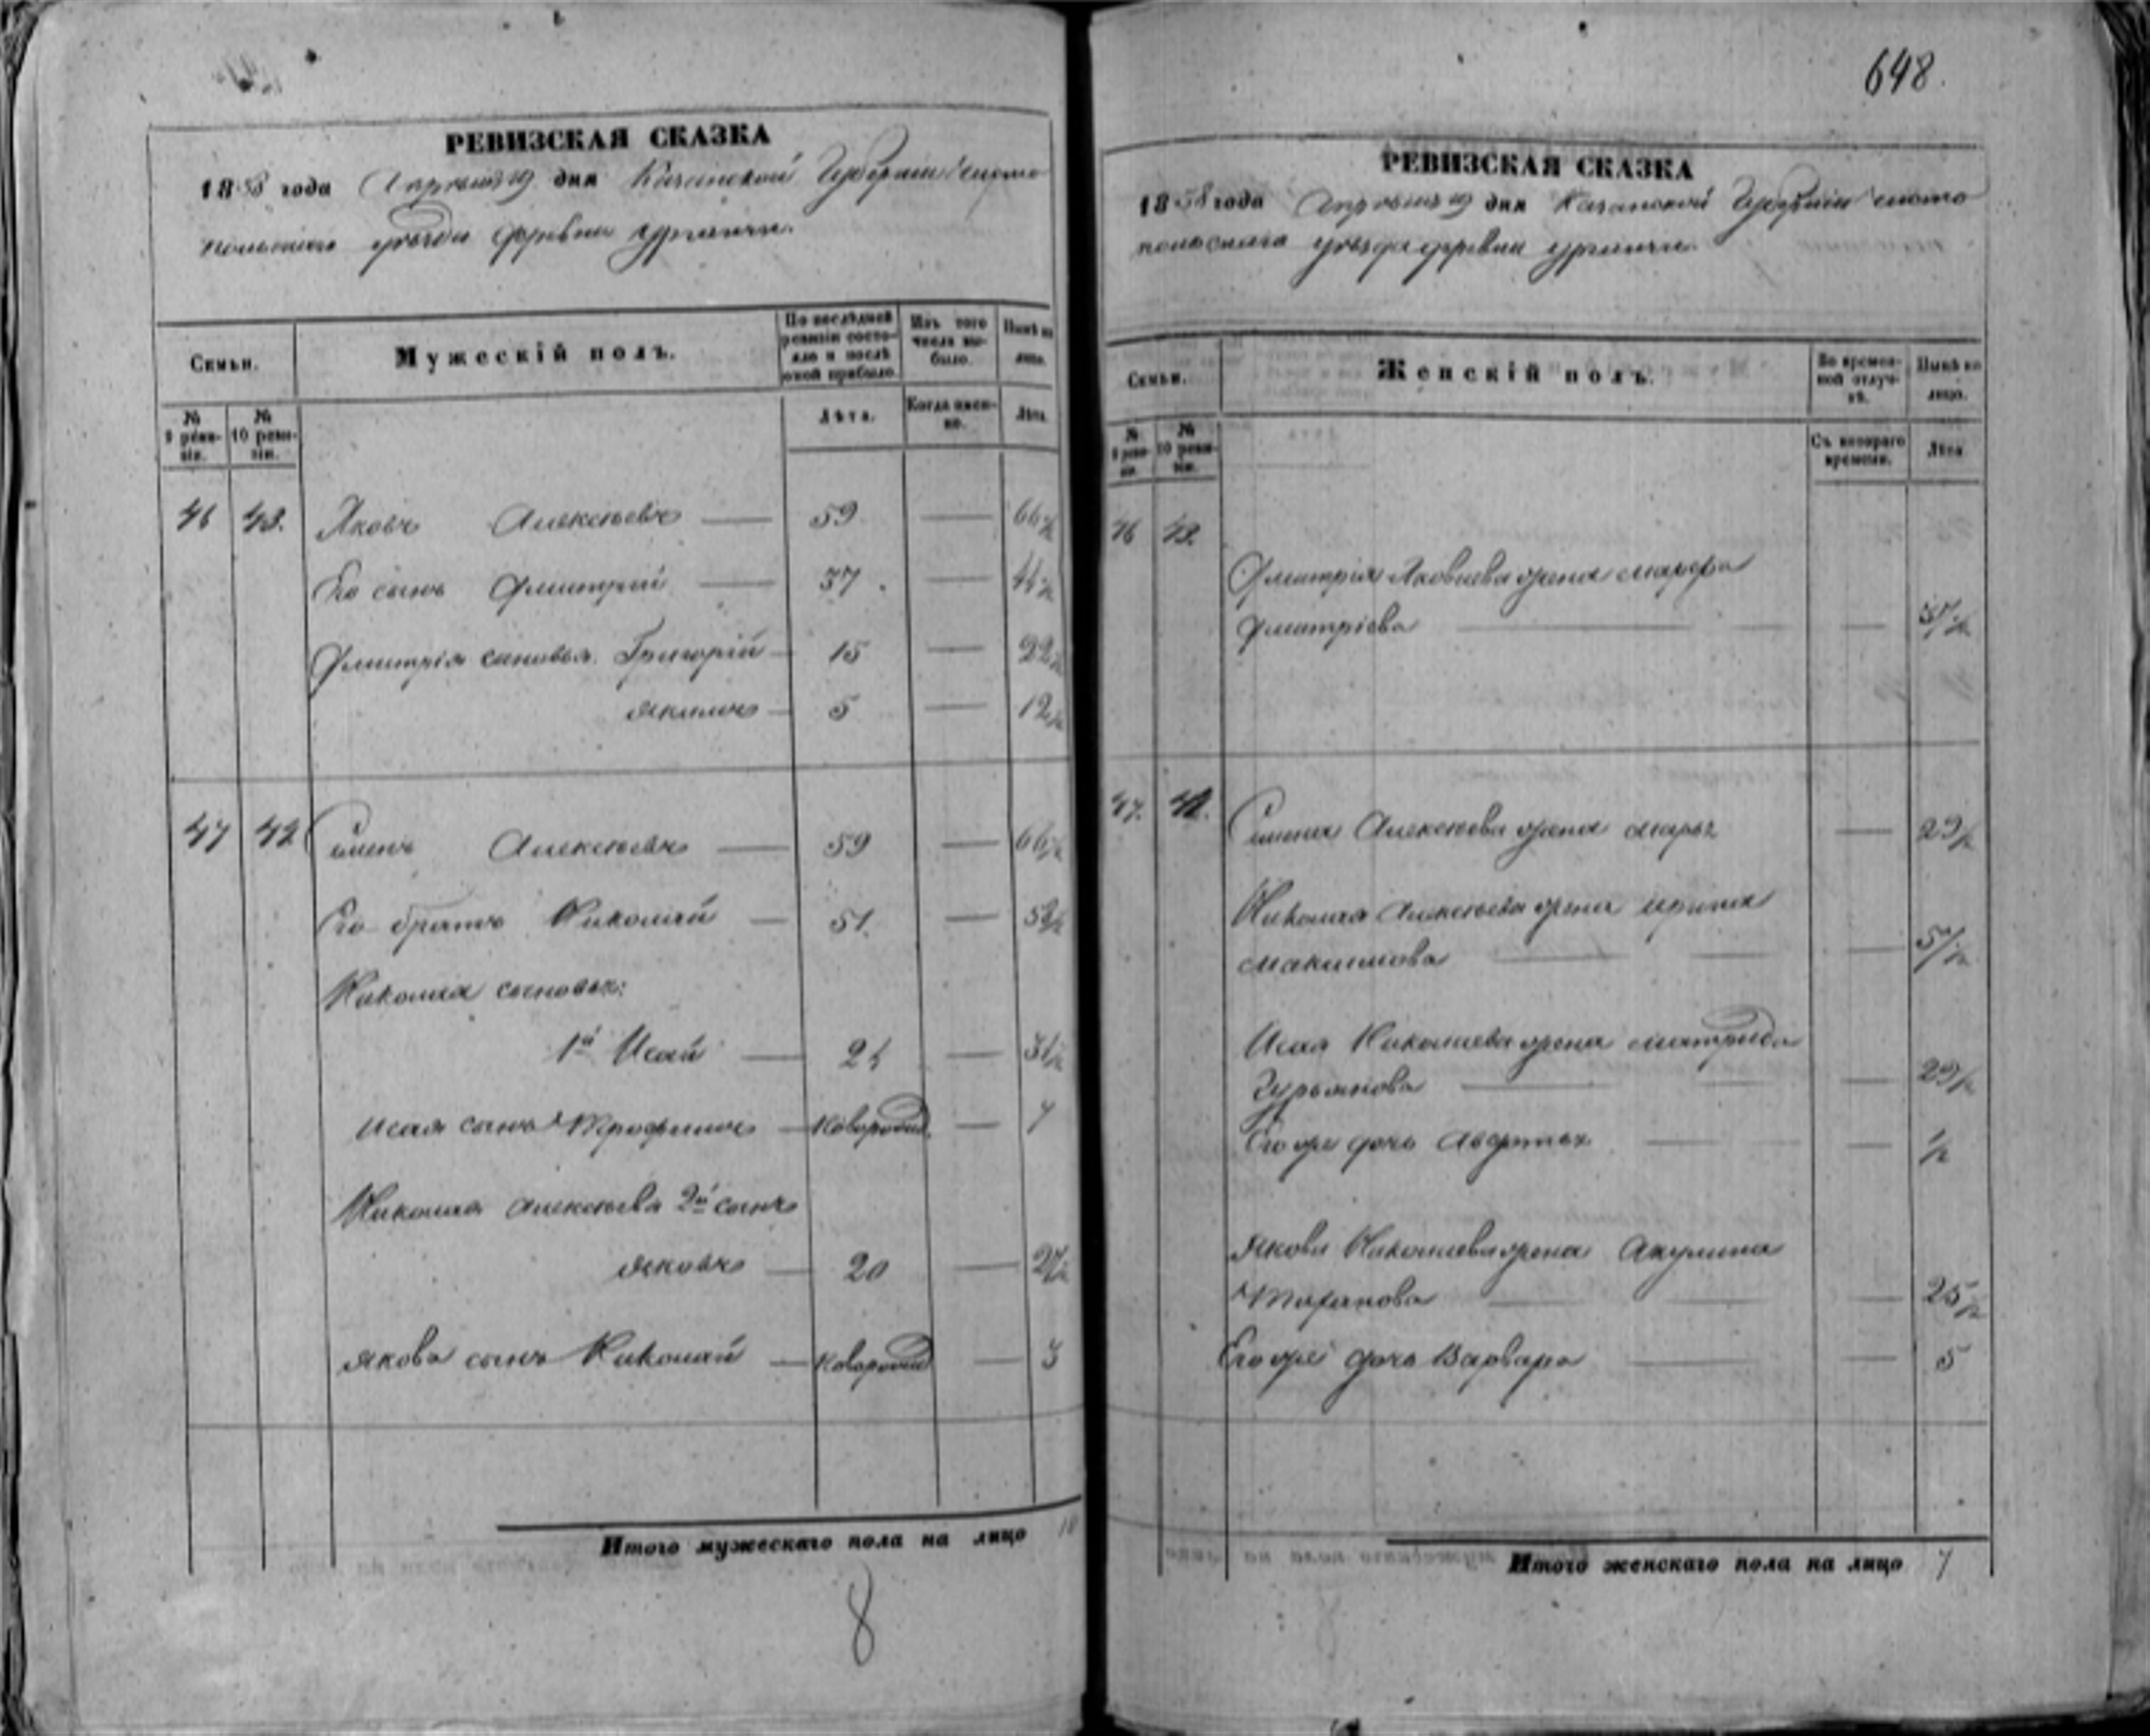 РЕВИЗСКАЯ СКАЗКА
1858 года Апреля 19 дня Казанской Губернии Чисто
польскаго уезда деревни
Семьи.
Мужескій полъ.
По послѣдней ревизіи состояло и послѣ оной прибыло.
Изъ того числа выбыло.
Нынѣ на лицо.
№ 9 ревизіи.
№ 10 ревизіи.
Лѣта.
Когда именно.
Лѣта
46 43. Яковъ Алексеевъ — 59 — 66½
Его сынъ Дмитрий — 37 — 44½
Дмитрія сыновья Григорій — 15 — 22½
Якимъ — 5 — 12½
47 42 Симонъ Алексеевъ — 59 — 66½
Его братъ Николай — 51. — 58½
Николая сыновья:
1й Исай — 24 — 31½
Исая сынъ Трофимъ — новорожд. — 7
Николая Алексеева 2й сынъ
Яковъ — 20 — 27½
Якова сынъ Николай — новорожд — 3
Итого мужескаго пола на лицо 10
8
648.
РЕВИЗСКАЯ СКАЗКА
1858 года Апреля 19 дня Казанской Губерніи Чисто
польскаго уезда деревни
Семьи.
Женскій полъ.
Во временной отлучкѣ.
Нынѣ на лицо.
№ 9 ревизіи.
№ 10 ревизіи.
Съ котораго времени.
Лѣта
46 43.
Дмитрія Яковлева жена Марфа
Дмитріева — —
47. 42. Симона Алексеева жена Марья — 29½
Николая Алексеева жена Ирина
Максимова — —
Исая Николаева жена Матрена
Гурьянова — — 29½
Его же дочь — — ½
Якова Николаева жена Акулина
— — 25½
Его же дочь Варвара — — 5
Итого женскаго пола на лицо 7